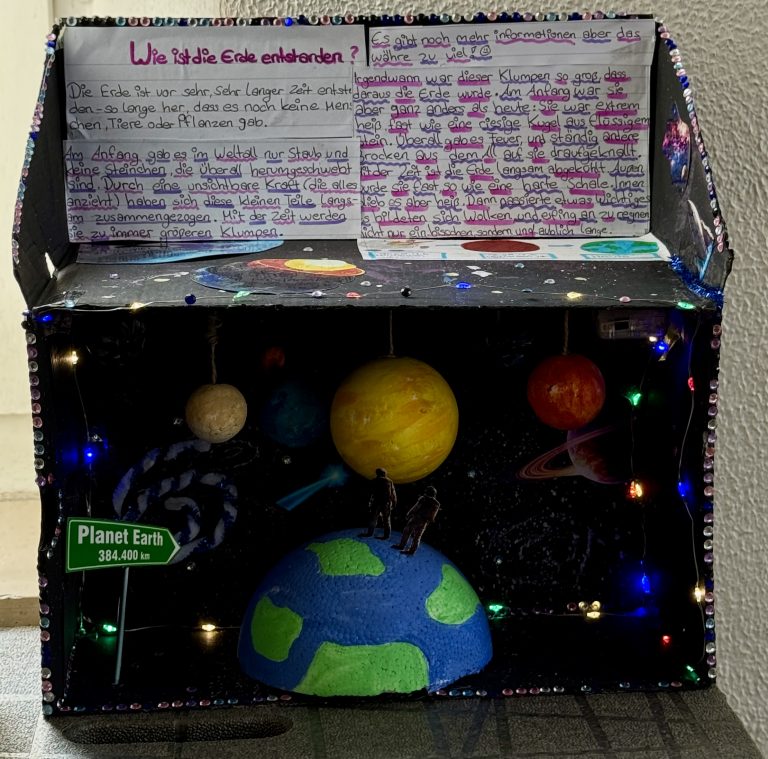 Wie ist die Erde entstanden?
Die Erde ist vor sehr, sehr langer Zeit entst
den - so lange her, dass es noch keine Men-
chen, Tiere oder Pflanzen gab.
Am Anfang gab es im Weltall nur Staub und
kleine Steinchen, die überall herumgeschwebt
sind. Durch eine unsichtbare Kraft (die alles
anzieht) haben sich diese kleinen Teile langs-
am zusammengezogen. Mit der Zeit werden
sie zu immer größeren Klumpen.
Es gibt noch mehr informationen aber das
währe zu viel!
Irgendwann war dieser Klumpen so groß, dass
daraus die Erde wurde. Am Anfang war sie
aber ganz anders als heute: Sie war extrem
heiß, fast wie eine riesige Kugel aus flüssigem
stein. Überall gab es feuer, und ständig andere
brocken aus dem All auf sie draufgeknallt.
der Zeit ist die Erde langsam abgekühlt. Außen
wurde sie fast so wie eine harte Schale. Innen
blieb es aber heiß. Dann passierte etwas Wichtiges
bildeten sich Wolken, und es fing an zu regnen
nicht nur ein bisschen, sondern unglaublich lange.
Planet Earth
384.400 km